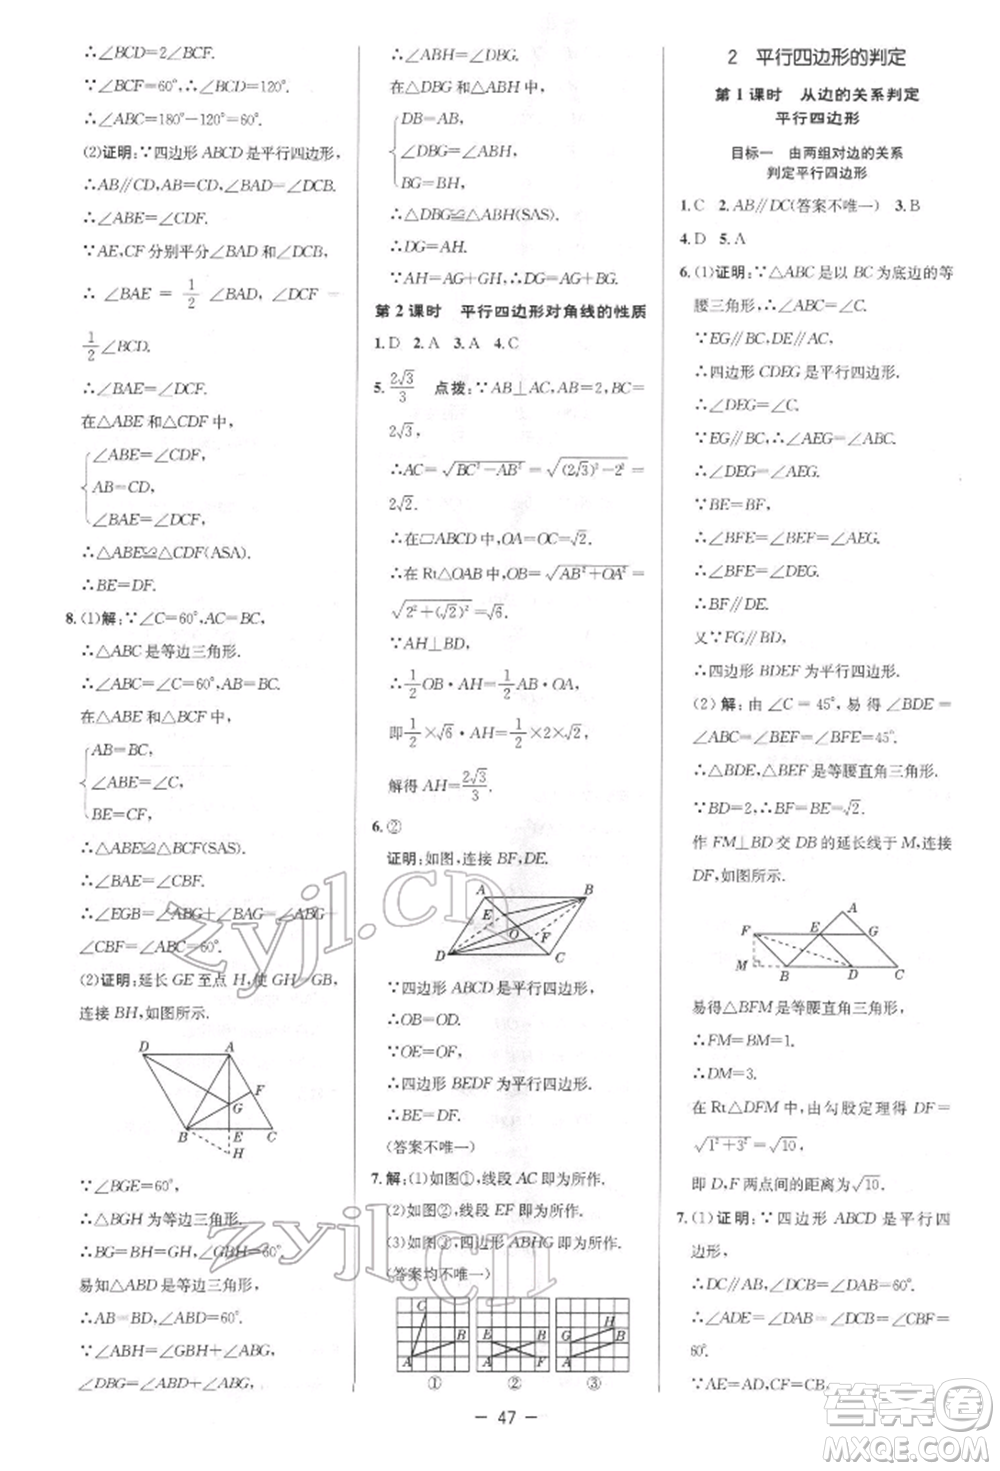 ∴∠BCD=2∠BCF.
∵∠BCF=60°,∴∠BCD=120°.
∴∠ABC=180°-120°=60°.
(2)证明:∵四边形ABCD是平行四边形,
∴AB∥CD,AB=CD,∠BAD=∠DCB.
∴∠ABE=∠CDF.
∵AE,CF分别平分∠BAD和∠DCB,
∴∠BAE=1/2∠BAD,∠DCF=
1/2∠BCD.
∴∠BAE=∠DCF.
在△ABE和△CDF中,
∠ABE=∠CDF,
AB=CD,
∠BAE=∠DCF,
∴△ABE≌△CDF(ASA).
∴BE=DF.
8.(1)解:∵∠C=60°,AC=BC,
∴△ABC是等边三角形.
∴∠ABC=∠C=60°,AB=BC.
在△ABE和△BCF中,
AB=BC,
∠ABE=∠C,
BE=CF,
∴△ABE≌△BCF(SAS).
∴∠BAE=∠CBF.
∴∠EGB=∠ABG+∠BAE=∠ABG+
∠CBF=∠ABC=60°.
(2)证明:延长GE至点H,使GH=GB,
连接BH,如图所示.
D A F G B E C H
∵∠BGE=60°,
∴△BGH为等边三角形.
∴BG=BH=GH,∠GBH=60°.
易知△ABD是等边三角形,
∴AB=BD,∠ABD=60°.
∵∠ABH=∠GBH+∠ABG,
∠DBG=∠ABD+∠ABG,
∴∠ABH=∠DBG.
在△DBG和△ABH中,
DB=AB,
∠DBG=∠ABH,
BG=BH,
∴△DBG≌△ABH(SAS).
∴DG=AH.
∵AH=AG+GH,∴DG=AG+BG.
第2课时 平行四边形对角线的性质
1.D 2.A 3.A 4.C
5. 2√3/3 点拨:∵AB⊥AC,AB=2,BC=
2√3,
∴AC=√(BC²-AB²)=√((2√3)²-2²)=
2√2.
∴在▱ABCD中,OA=OC=√2.
∴在Rt△OAB中,OB=√(AB²+OA²)=
√(2²+(√2)²)=√6.
∵AH⊥BD,
∴1/2OB·AH=1/2AB·OA,
即1/2×√6·AH=1/2×2×√2,
解得AH=2√3/3.
6.②
证明:如图,连接BF,DE.
A B E O F D C
∵四边形ABCD是平行四边形,
∴OB=OD.
∵OE=OF,
∴四边形BEDF为平行四边形.
∴BE=DF.
(答案不唯一)
7.解:(1)如图①,线段AC即为所作.
(2)如图②,线段EF即为所作.
(3)如图③,四边形ABHG即为所作.
(答案均不唯一)
C B A E B A F H G B A
① ② ③
2 平行四边形的判定
第1课时 从边的关系判定
平行四边形
目标一 由两组对边的关系
判定平行四边形
1.C 2.AB∥DC(答案不唯一) 3.B
4.D 5.A
6.(1)证明:∵△ABC是以BC为底边的等
腰三角形,∴∠ABC=∠C.
∵EG∥BC,DE∥AC,
∴四边形CDEG为平行四边形.
∴∠DEG=∠C.
∵EG∥BC,∴∠AEG=∠ABC.
∴∠DEG=∠AEG.
∵BE=BF,
∴∠BFE=∠BEF=∠AEG.
∴∠BFE=∠DEG.
∴BF∥DE.
又∵FG∥BD,
∴四边形BDEF为平行四边形.
(2)解:由∠C=45°,易得∠BDE=
∠ABC=∠BEF=∠BFE=45°.
∴△BDE,△BEF是等腰直角三角形.
∵BD=2,∴BF=BE=√2.
作FM⊥BD交DB的延长线于M,连接
DF,如图所示.
A F E G M B D C
易得△BFM是等腰直角三角形,
∴FM=BM=1.
∴DM=3.
在Rt△DFM中,由勾股定理得DF=
√(1²+3²)=√10,
即D,F两点间的距离为√10.
7.(1)证明:∵四边形ABCD是平行四
边形,
∴DC∥AB,∠DCB=∠DAB=60°.
∴∠ADE=∠DCB=∠CBF=
60°.
∵AE=AD,
— 47 —
zyjl.cn
zyjl.cn
答案圈
MXQE.COM